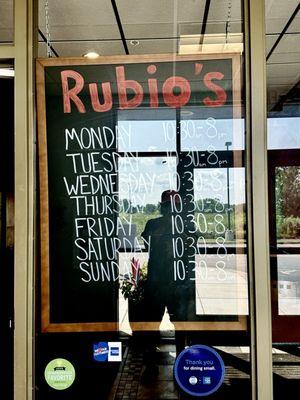 Rubio's
MONDAY 10:30-8 pm
TUESDAY 10:30-8 pm
WEDNESDAY 10:30-8 pm
THURSDAY 10:30-8
FRIDAY 10:30-8
SATURDAY 10:30-8
SUNDAY 10:30-8
FAVORITE
Thank you
for dining